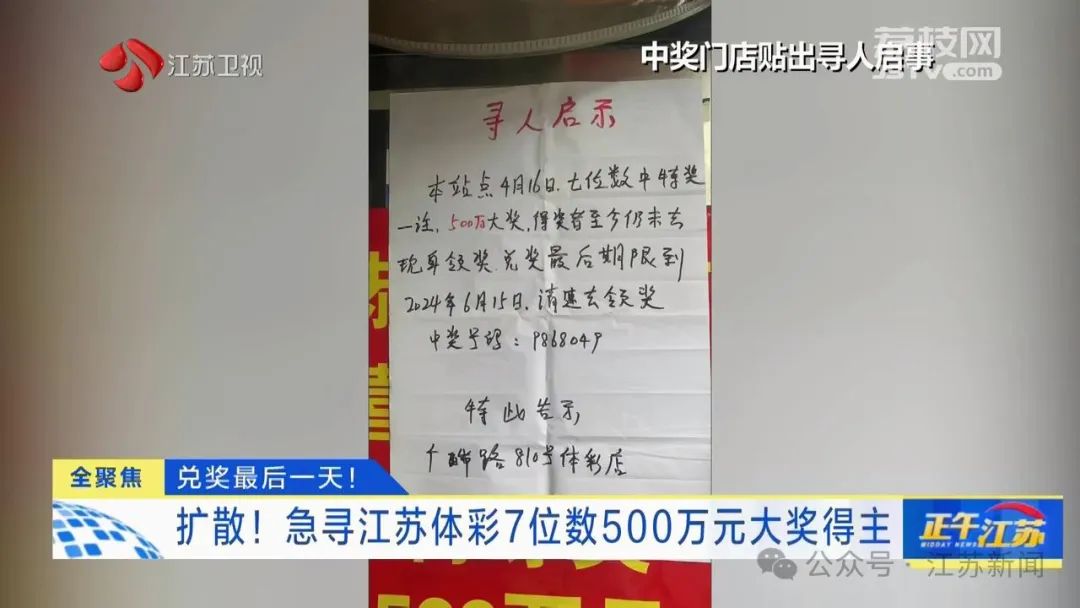 江苏卫视
荔枝网
jstv.com
中奖门店贴出寻人启事
寻人启示
本站点4月16日.七位数中特奖
一注,500万大奖,得奖者至今仍未去
现身领奖.兑奖最后期限到
2024年6月15日.请速去领奖
中奖号码:9868049
特此告示
路810号体彩店
全聚焦
兑奖最后一天!
扩散!急寻江苏体彩7位数500万元大奖得主
正午江苏
MIDDAY NEWS
公众号·江苏新闻